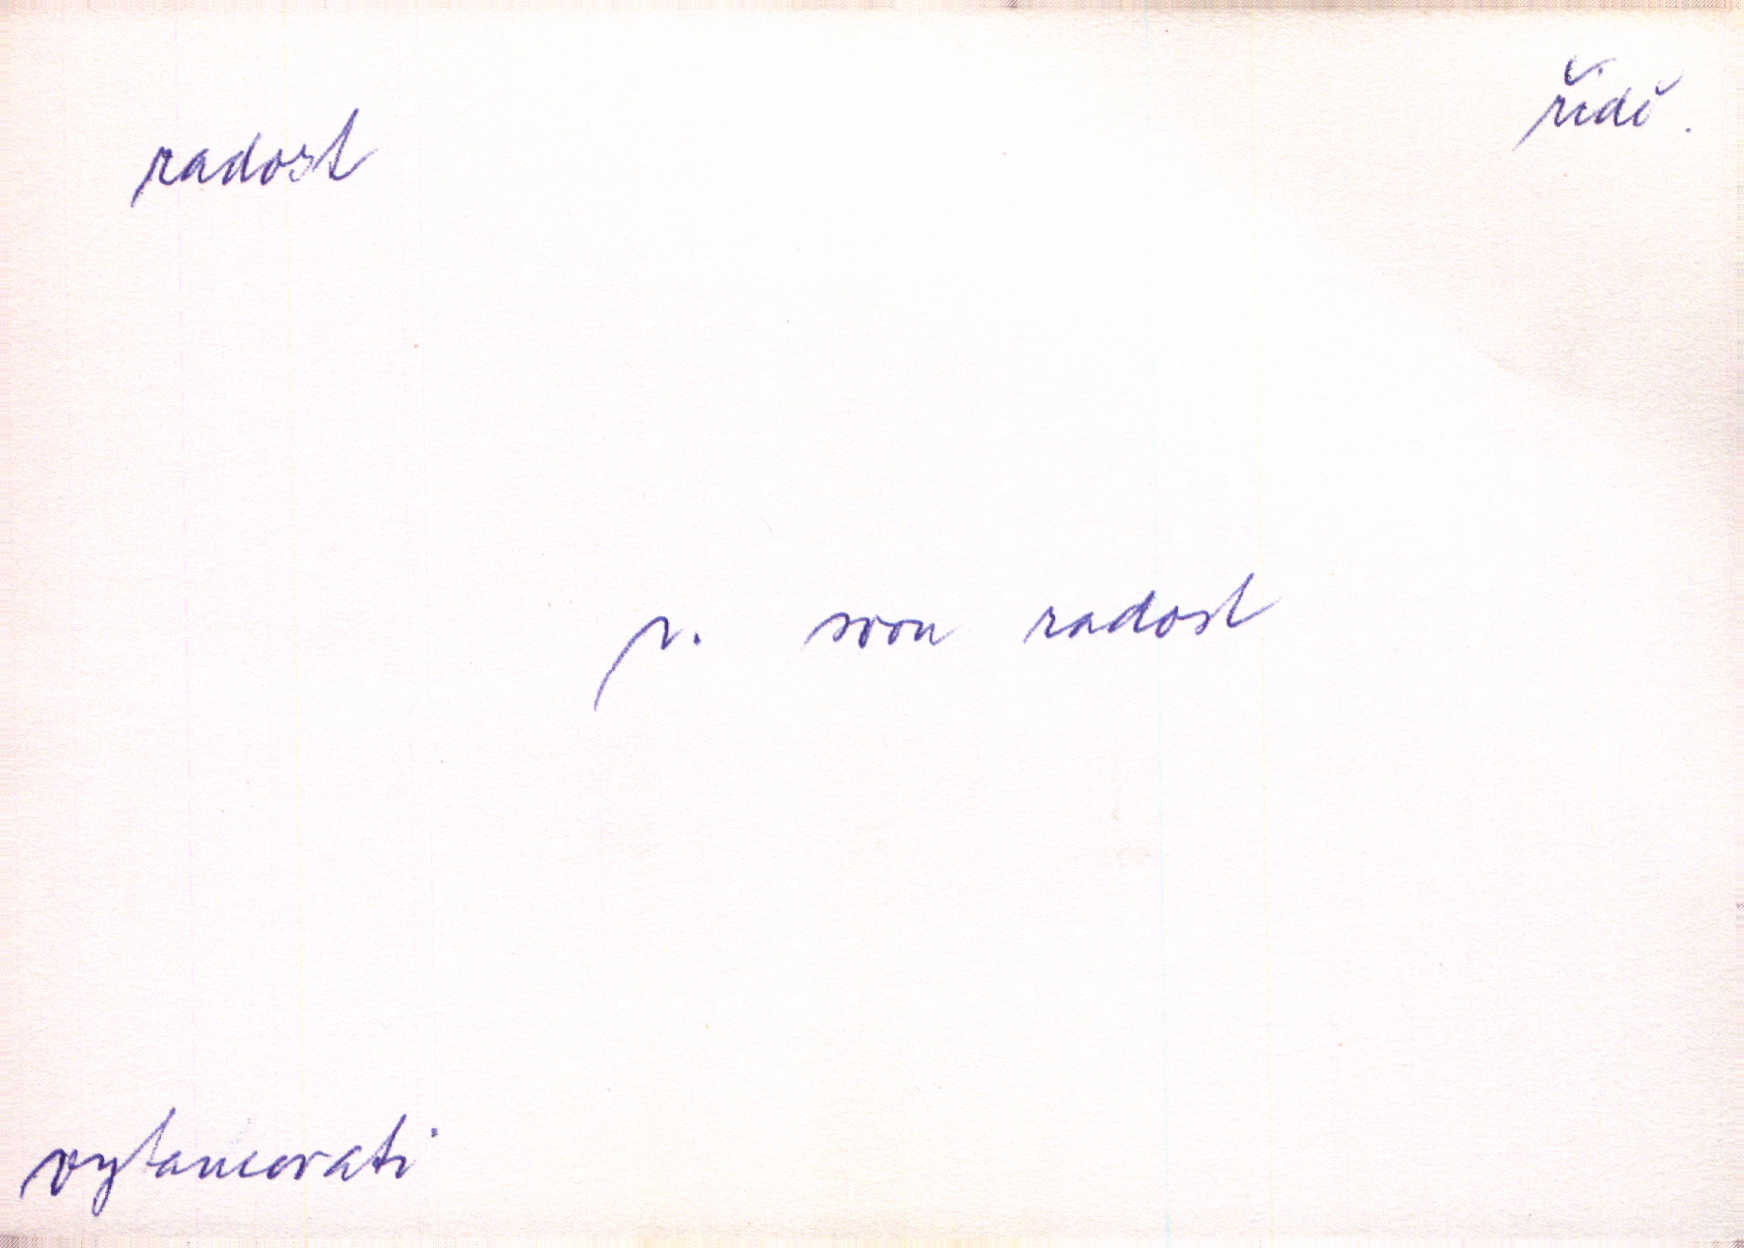 řidč.
radost
v. svou radost
vytancovati